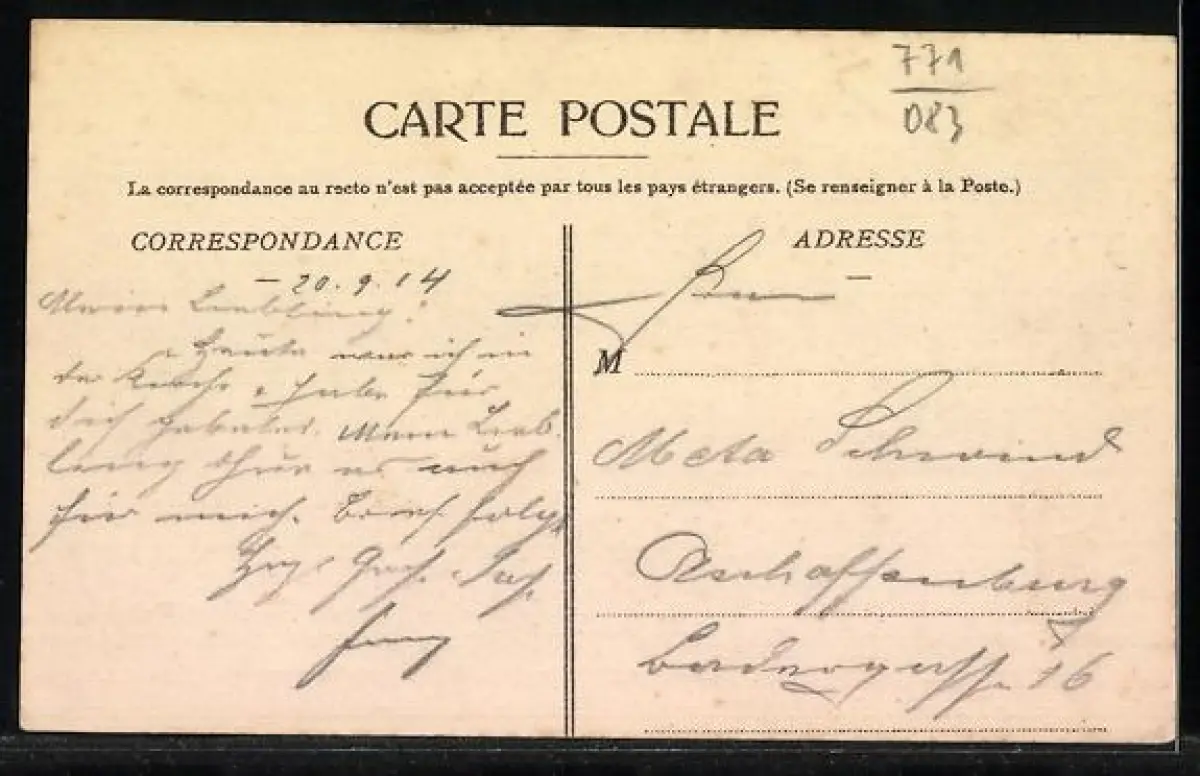 771
083
CARTE POSTALE
La correspondance au recto n'est pas acceptée par tous les pays étrangers. (Se renseigner à la Poste.)
CORRESPONDANCE
- 20.9.14
Mein Liebling!
Heute war ich in
der Kirche & habe für
dich gebetet. Mein Lieb
ling thue es auch
für mich. Brief folgt
ADRESSE
Frau
M
Meta Schwind
Aschaffenburg
Badergasse 16